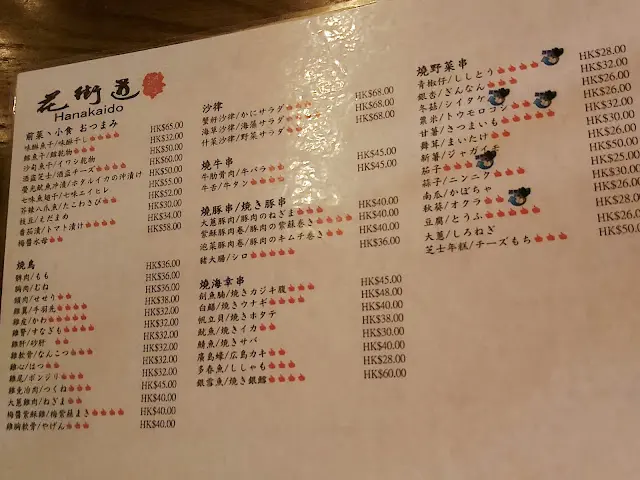 花街道
Hanakaido
前菜、小食 おつまみ
味醂魚干/味醂干し HK$65.00
鱲魚干/
沙甸魚干/イワシ乾物
酒盗芝士/酒盗チーズ
螢光魷魚沖漬/ホタルイカの沖漬け
七味魚翅干/七味エイヒレ
芥辣八爪魚/たこわさび
枝豆/えだまめ
番茄漬/トマト漬け HK$34.00
梅醬水母 HK$58.00
燒鳥
髀肉/もも HK$36.00
胸肉/むね HK$36.00
頸肉/せせり HK$38.00
雞翼/手羽先 HK$38.00
雞皮/かわ HK$32.00
雞腎/すなぎも HK$32.00
雞肝/砂肝 HK$32.00
雞軟骨/なんこつ HK$32.00
雞心/はつ HK$32.00
雞尾/ボンジリ HK$32.00
雞免治肉/つくね HK$45.00
大蔥雞肉/ねぎま HK$40.00
梅醬紫蘇雞/梅紫蘇まき HK$40.00
雞胸軟骨/やげん HK$40.00
沙律
蟹籽沙律/かにサラダ HK$68.00
海草沙律/海藻サラダ HK$68.00
什菜沙律/野菜サラダ HK$68.00
燒牛串
牛肋骨肉/牛バラ HK$45.00
牛舌/牛タン HK$45.00
燒豚串/燒き豚串
大蔥豚肉/豚肉のねぎま HK$40.00
紫蘇豚肉卷/豚肉の紫蘇巻き HK$40.00
泡菜豚肉卷/豚肉のキムチ巻き HK$40.00
豬大腸/シロ HK$36.00
燒海幸串
劍魚腩/燒きカジキ腹 HK$45.00
白鱔/燒きウナギ HK$48.00
帆立貝/燒きホタテ HK$40.00
魷魚/燒きイカ HK$38.00
鯖魚/燒きサバ HK$30.00
廣島蠔/広島カキ HK$40.00
多春魚/ししゃも HK$28.00
銀雪魚/燒き銀鱈 HK$60.00
燒野菜串
青椒仔/ししとう HK$28.00
銀杏/ぎんなん HK$26.00
冬菇/シイタケ HK$32.00
粟米/トウモロコシ HK$26.00
甘薯/さつまいも
舞茸/まいたけ
新薯/ジャガイモ
茄子/
蒜子/ニンニク
南瓜/かぼちゃ
秋葵/オクラ
豆腐/とうふ
大蔥/しろねぎ
芝士年糕/チーズもち